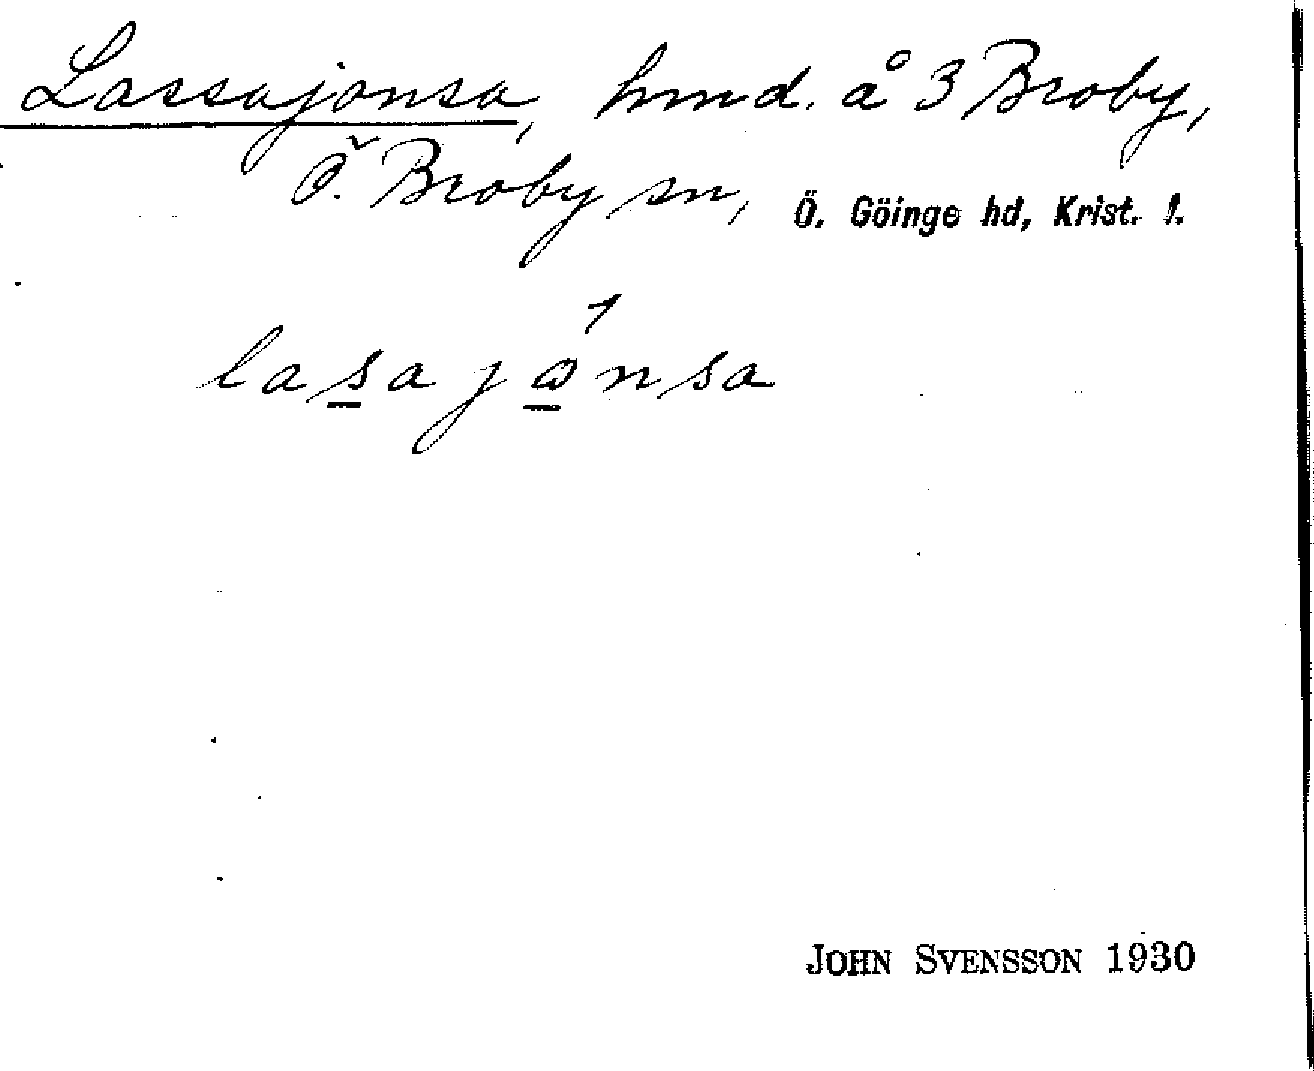 Lassajonsa, hmd. å 3 Broby,
Ö. Broby sn, Ö. Göinge hd, Krist. l.
lasajɷnsa
JOHN SVENSSON 1930